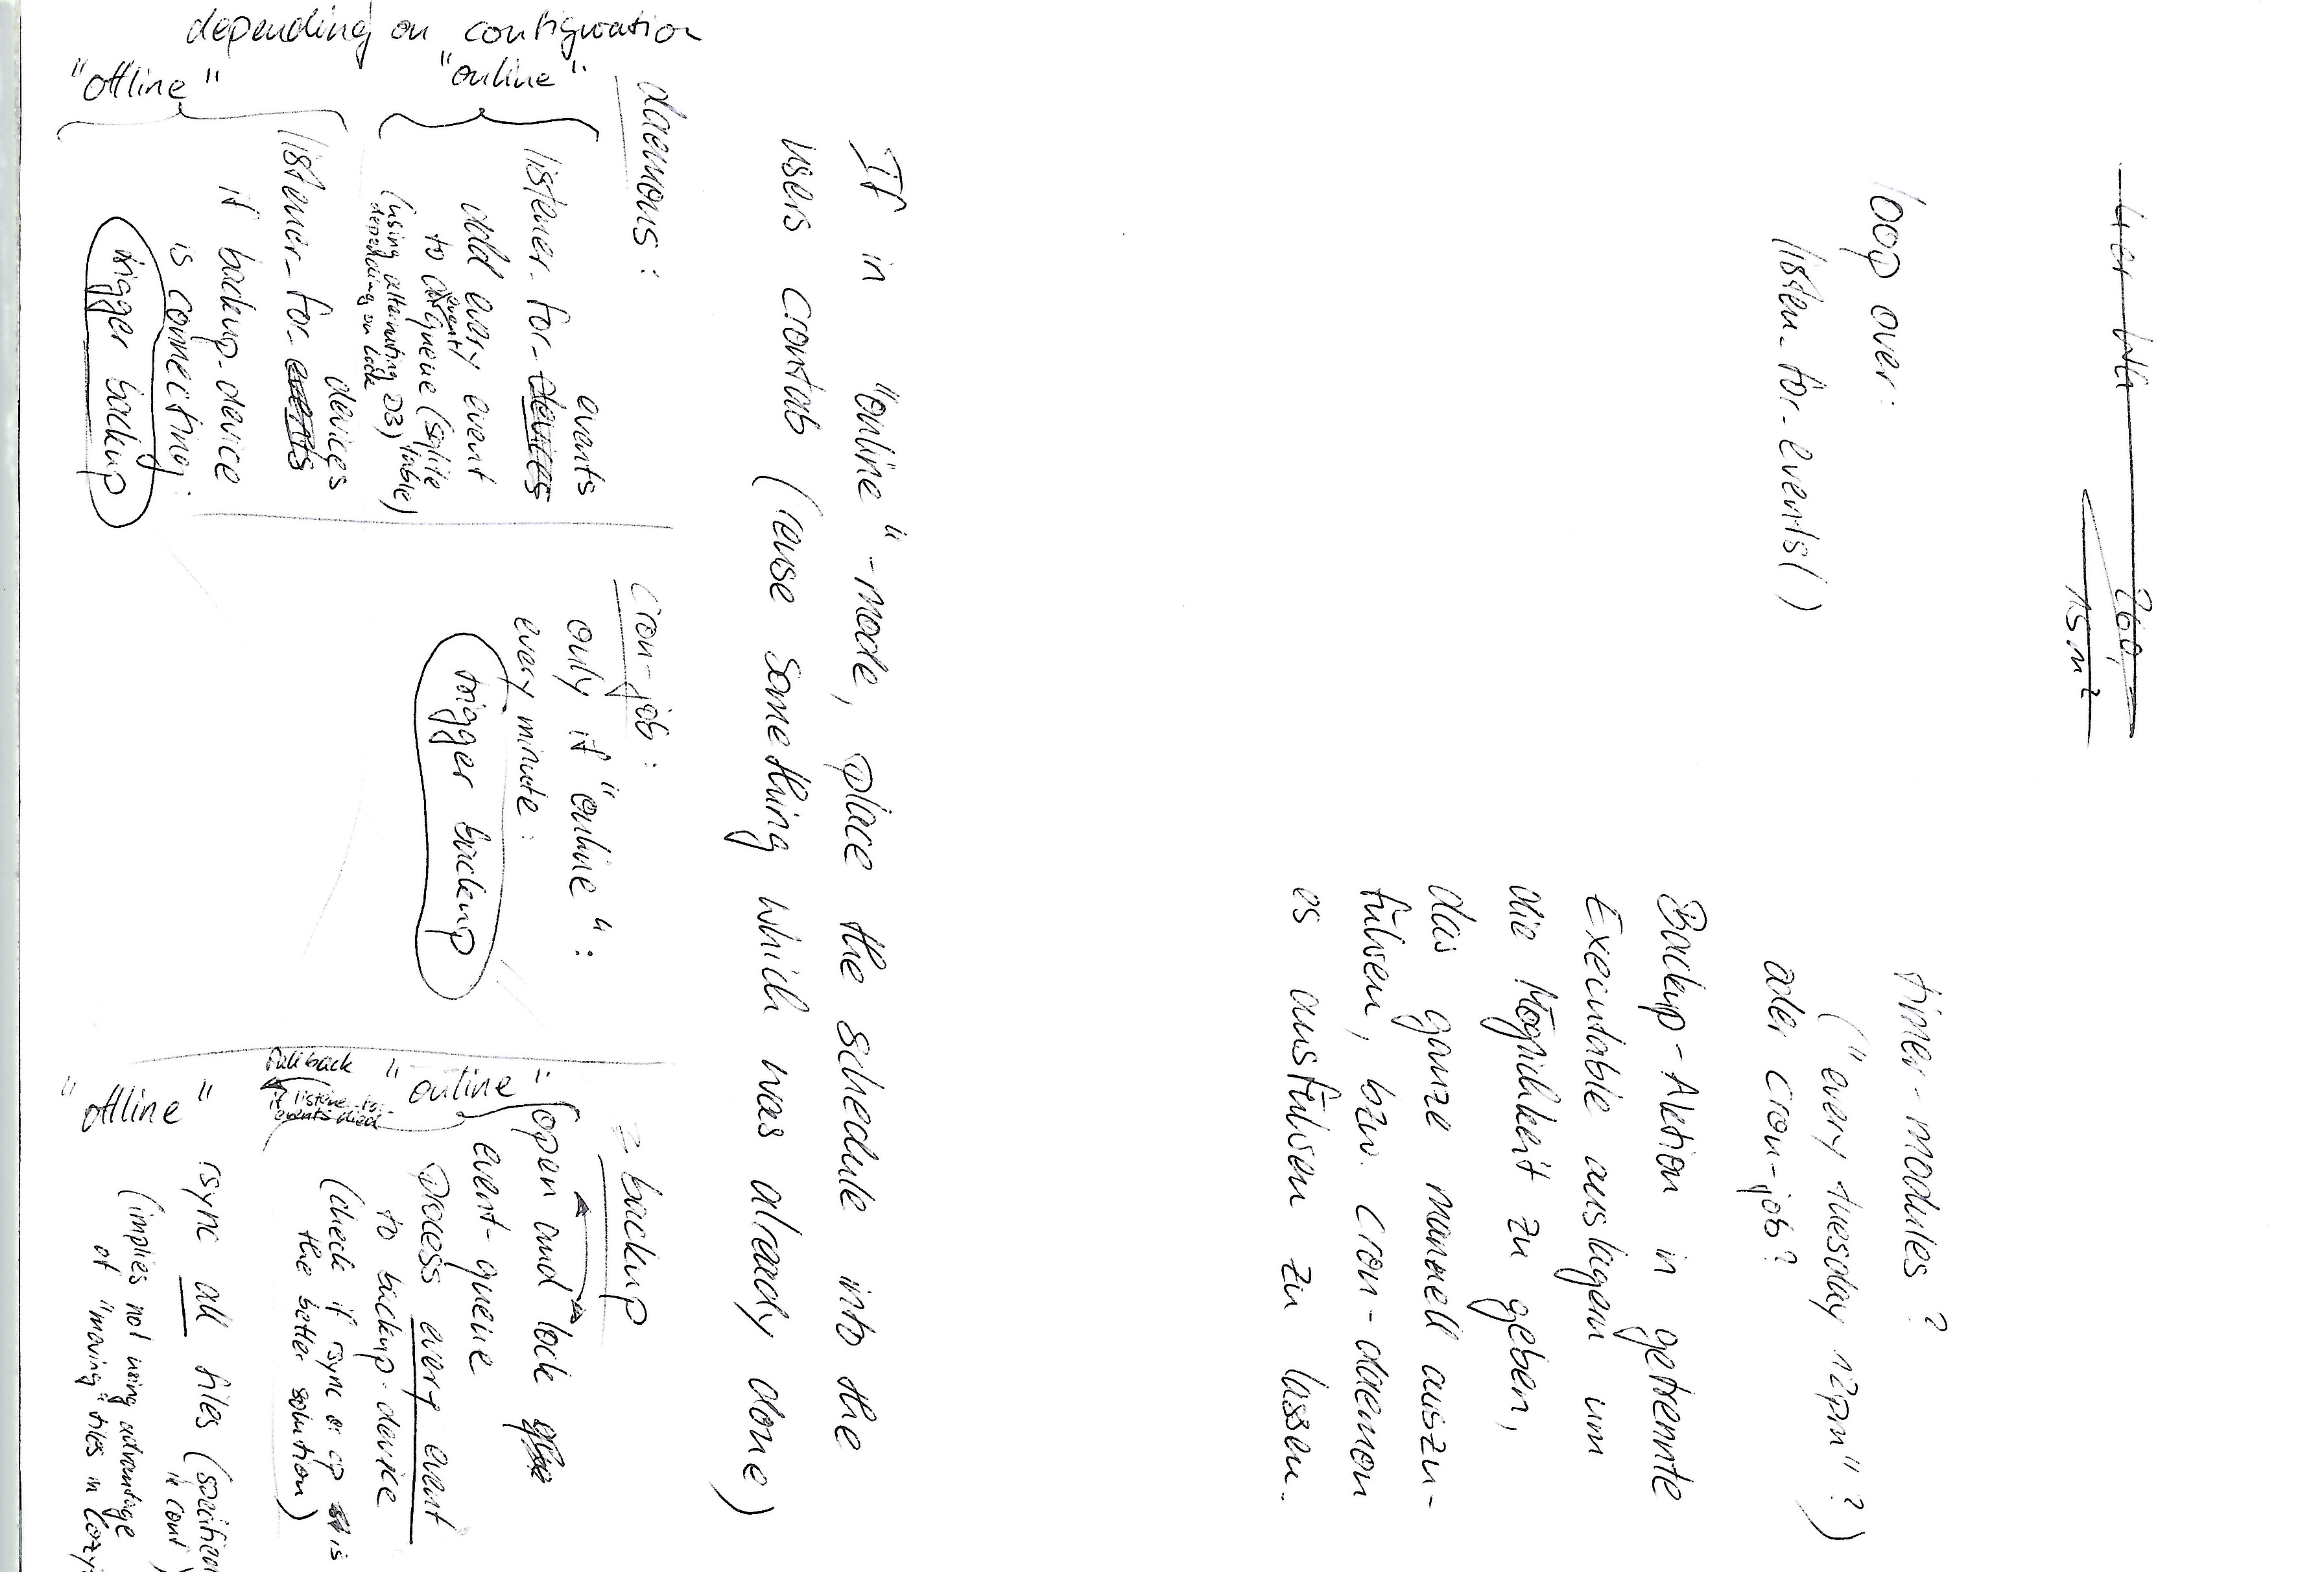 260,-
15 m²
loop over:
listen_for_events()
timer-modules ?
("every tuesday 12pm"?)
oder cron-job?
Backup-Aktion in getrennte
Executable auslagern um
die Möglichkeit zu geben,
das ganze manuell auszu-
führen, bzw. cron-daemon
es ausführen zu lassen.
If in "online"-mode, place the schedule into the
users crontab (reuse something which was already done)
depending on configuration
"online"
"offline"
daemons:
events
listener_for_devices
add every event
to event queue (sqlite
table)
(using alternating DB)
depending on lock
devices
listener_for_events
if backup-device
is connecting:
trigger backup
cron-job:
only if "online":
every minute:
trigger backup
backup
"online"
open and lock
event-queue
Process every event
to backup-device
(check if rsync or cp is
the better solution)
fallback
if listene-to-
events died
"offline"
rsync all files (specified
in conf)
(implies not using advantage
of "moving" files in cozy